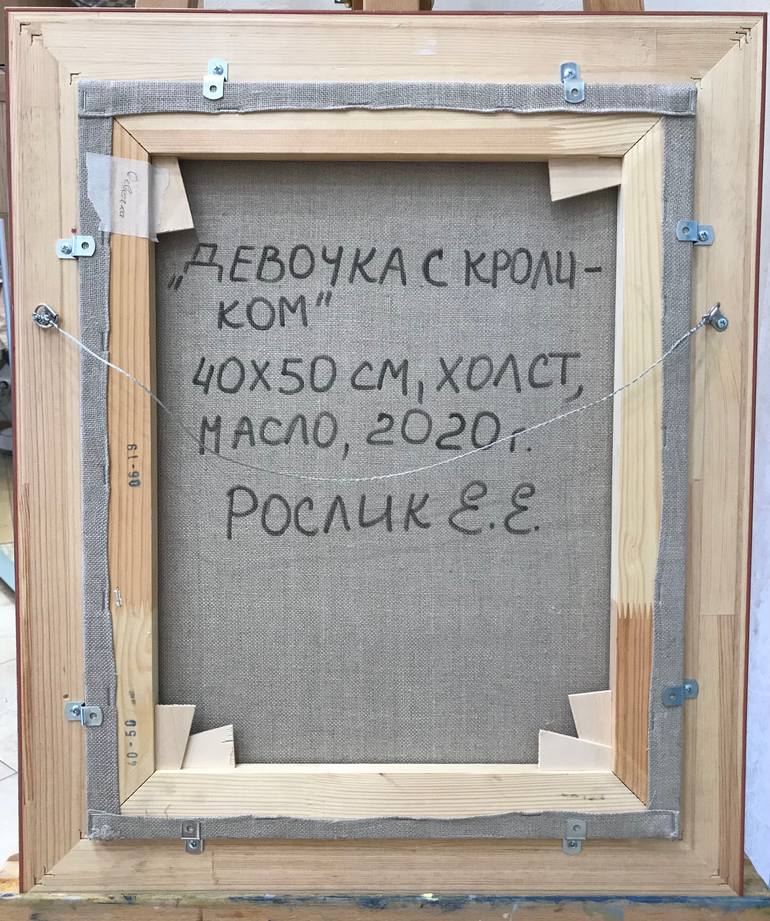 „ДЕВОЧКА С КРОЛИ-
КОМ"
40Х50 СМ, ХОЛСТ,
МАСЛО, 2020г.
РОСЛИК Е.Е.
06-19
40-50